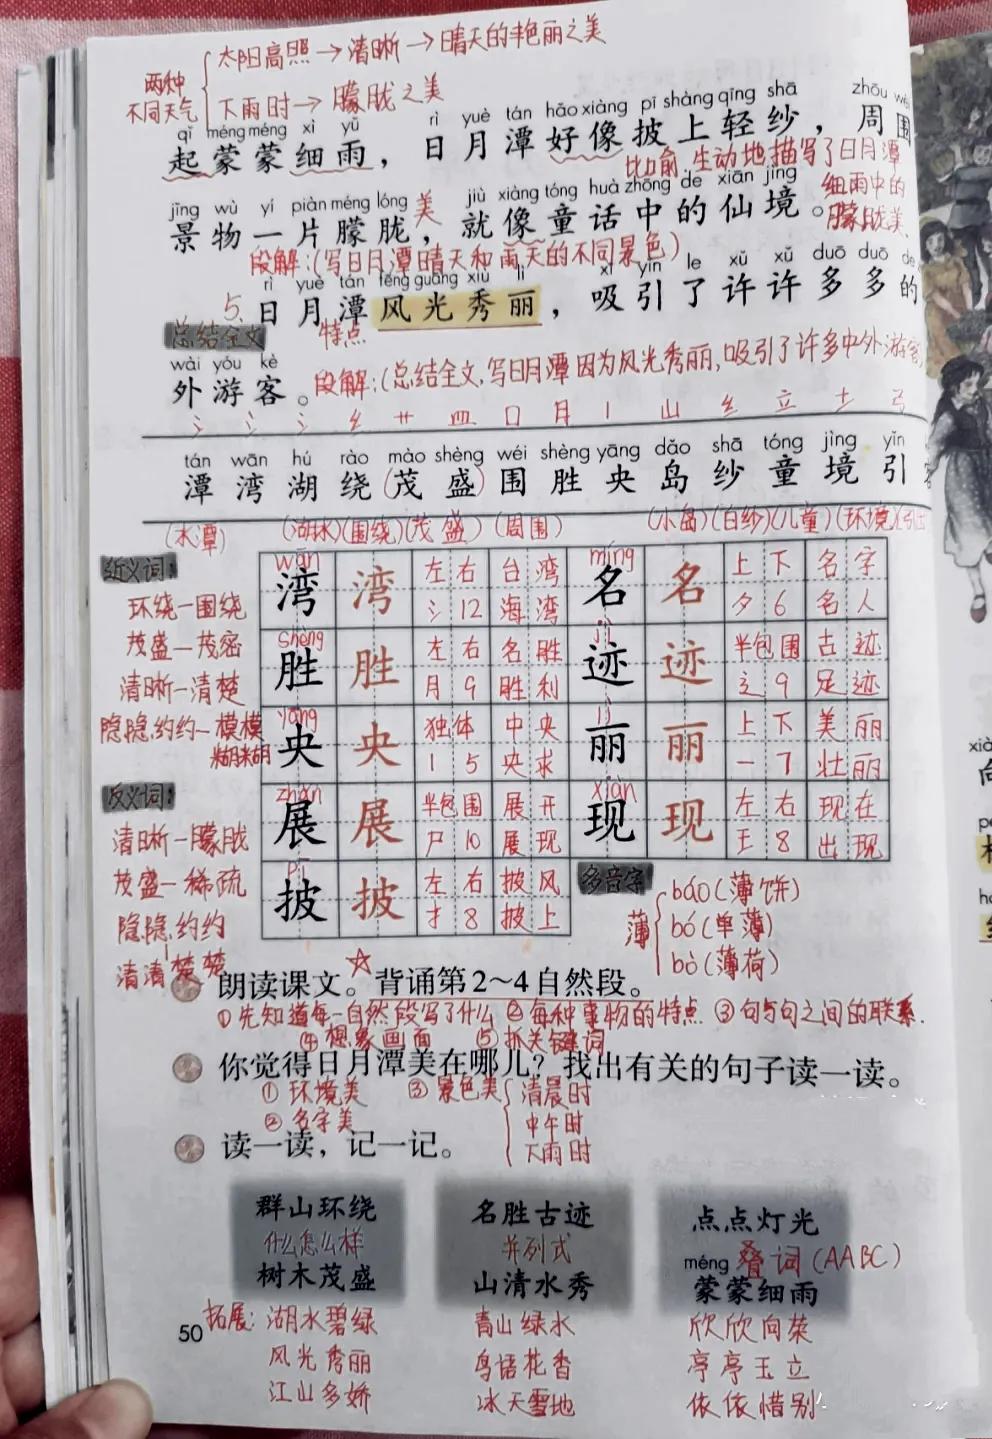 两种不同天气
太阳高照→清晰→晴天的艳丽之美
下雨时→朦胧之美
qǐ méng méng xì yǔ rì yuè tán hǎo xiàng pī shàng qīng shā zhōu wéi
起蒙蒙细雨，日月潭好像披上轻纱，周围
比喻,生动地描写了日月潭
细雨中的
朦胧美.
jǐng wù yí piàn méng lóng jiù xiàng tóng huà zhōng de xiān jìng
景物一片朦胧，就像童话中的仙境。
美
段解:(写日月潭晴天和雨天的不同景色)
rì yuè tán fēng guāng xiù lì xī yǐn le xǔ xǔ duō duō de
5.日月潭风光秀丽，吸引了许许多多的
总结全文 特点
wài yóu kè
外游客。
段解:(总结全文,写日月潭因为风光秀丽,吸引了许多中外游客
氵 氵 氵 纟 艹 皿 口 月 丨 山 纟 立 土 弓
tán wān hú rào mào shèng wéi shèng yāng dǎo shā tóng jìng yǐn
潭 湾 湖 绕(茂 盛)围 胜 央 岛 纱 童 境 引
(水潭) (湖水)(围绕)(茂盛)(周围) (小岛)(白纱)(儿童)(环境)(引出
近义词:
环绕—围绕
茂盛—茂密
清晰—清楚
隐隐约约—模模糊糊
反义词:
清晰—朦胧
茂盛—稀疏
隐隐约约
清清楚楚
wān 湾 湾 左右 台湾 míng 名 名 上下 名字
氵12 海湾 夕6 名人
shèng 胜 胜 左右 名胜 jì 迹 迹 半包围 古迹
月9 胜利 辶9 足迹
yāng 央 央 独体 中央 lì 丽 丽 上下 美丽
1 5 央求 一7 壮丽
zhǎn 展 展 半包围 展开 xiàn 现 现 左右 现在
尸10 展现 王8 出现
pī 披 披 左右 披风
扌8 披上
多音字
薄
báo(薄饼)
bó(单薄)
bò(薄荷)
☆
朗读课文。背诵第2～4自然段。
①先知道每一自然段写了什么 ②每种事物的特点 ③句与句之间的联系.
④想象画面 ⑤抓关键词
你觉得日月潭美在哪儿？找出有关的句子读一读。
①环境美 ③景色美 清晨时
②名字美 中午时
下雨时
读一读，记一记。
群山环绕 名胜古迹 点点灯光
什么怎么样 并列式 méng 叠词(AABC)
树木茂盛 山清水秀 蒙蒙细雨
拓展: 湖水碧绿 青山绿水 欣欣向荣
50
风光秀丽 鸟语花香 亭亭玉立
江山多娇 冰天雪地 依依惜别